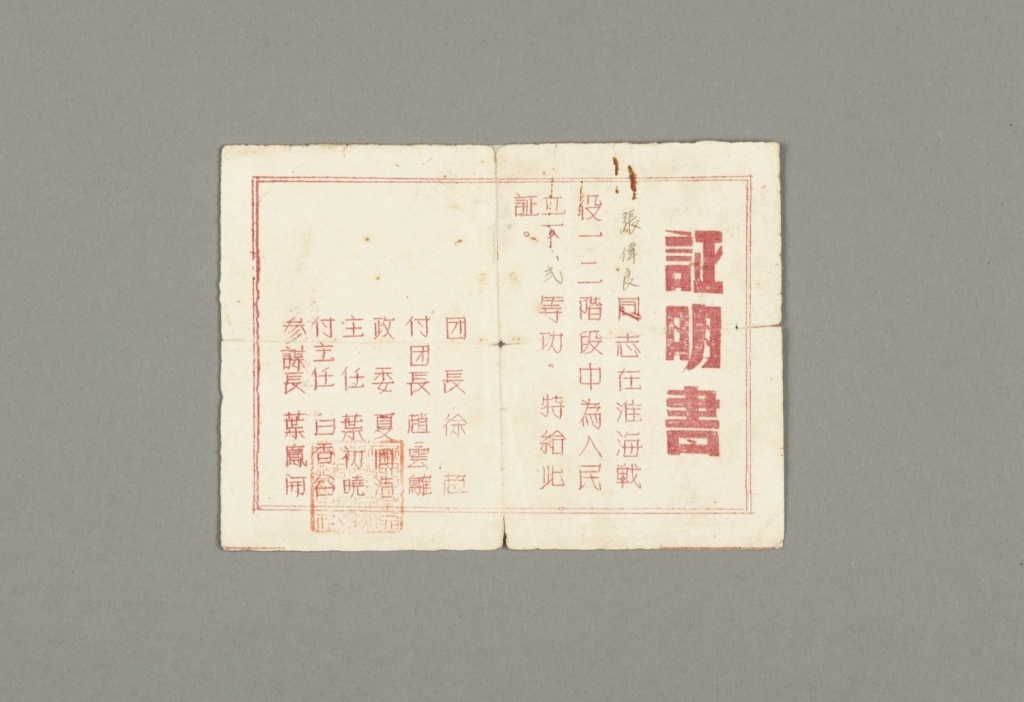 証明書
張偉良同志在淮海戰
役一二階段中為人民
立下弍等功。特給此
証。
团長徐
付团長趙雲
政委夏
主任葉初曉
付主任白香谷
参謀長葉鳳